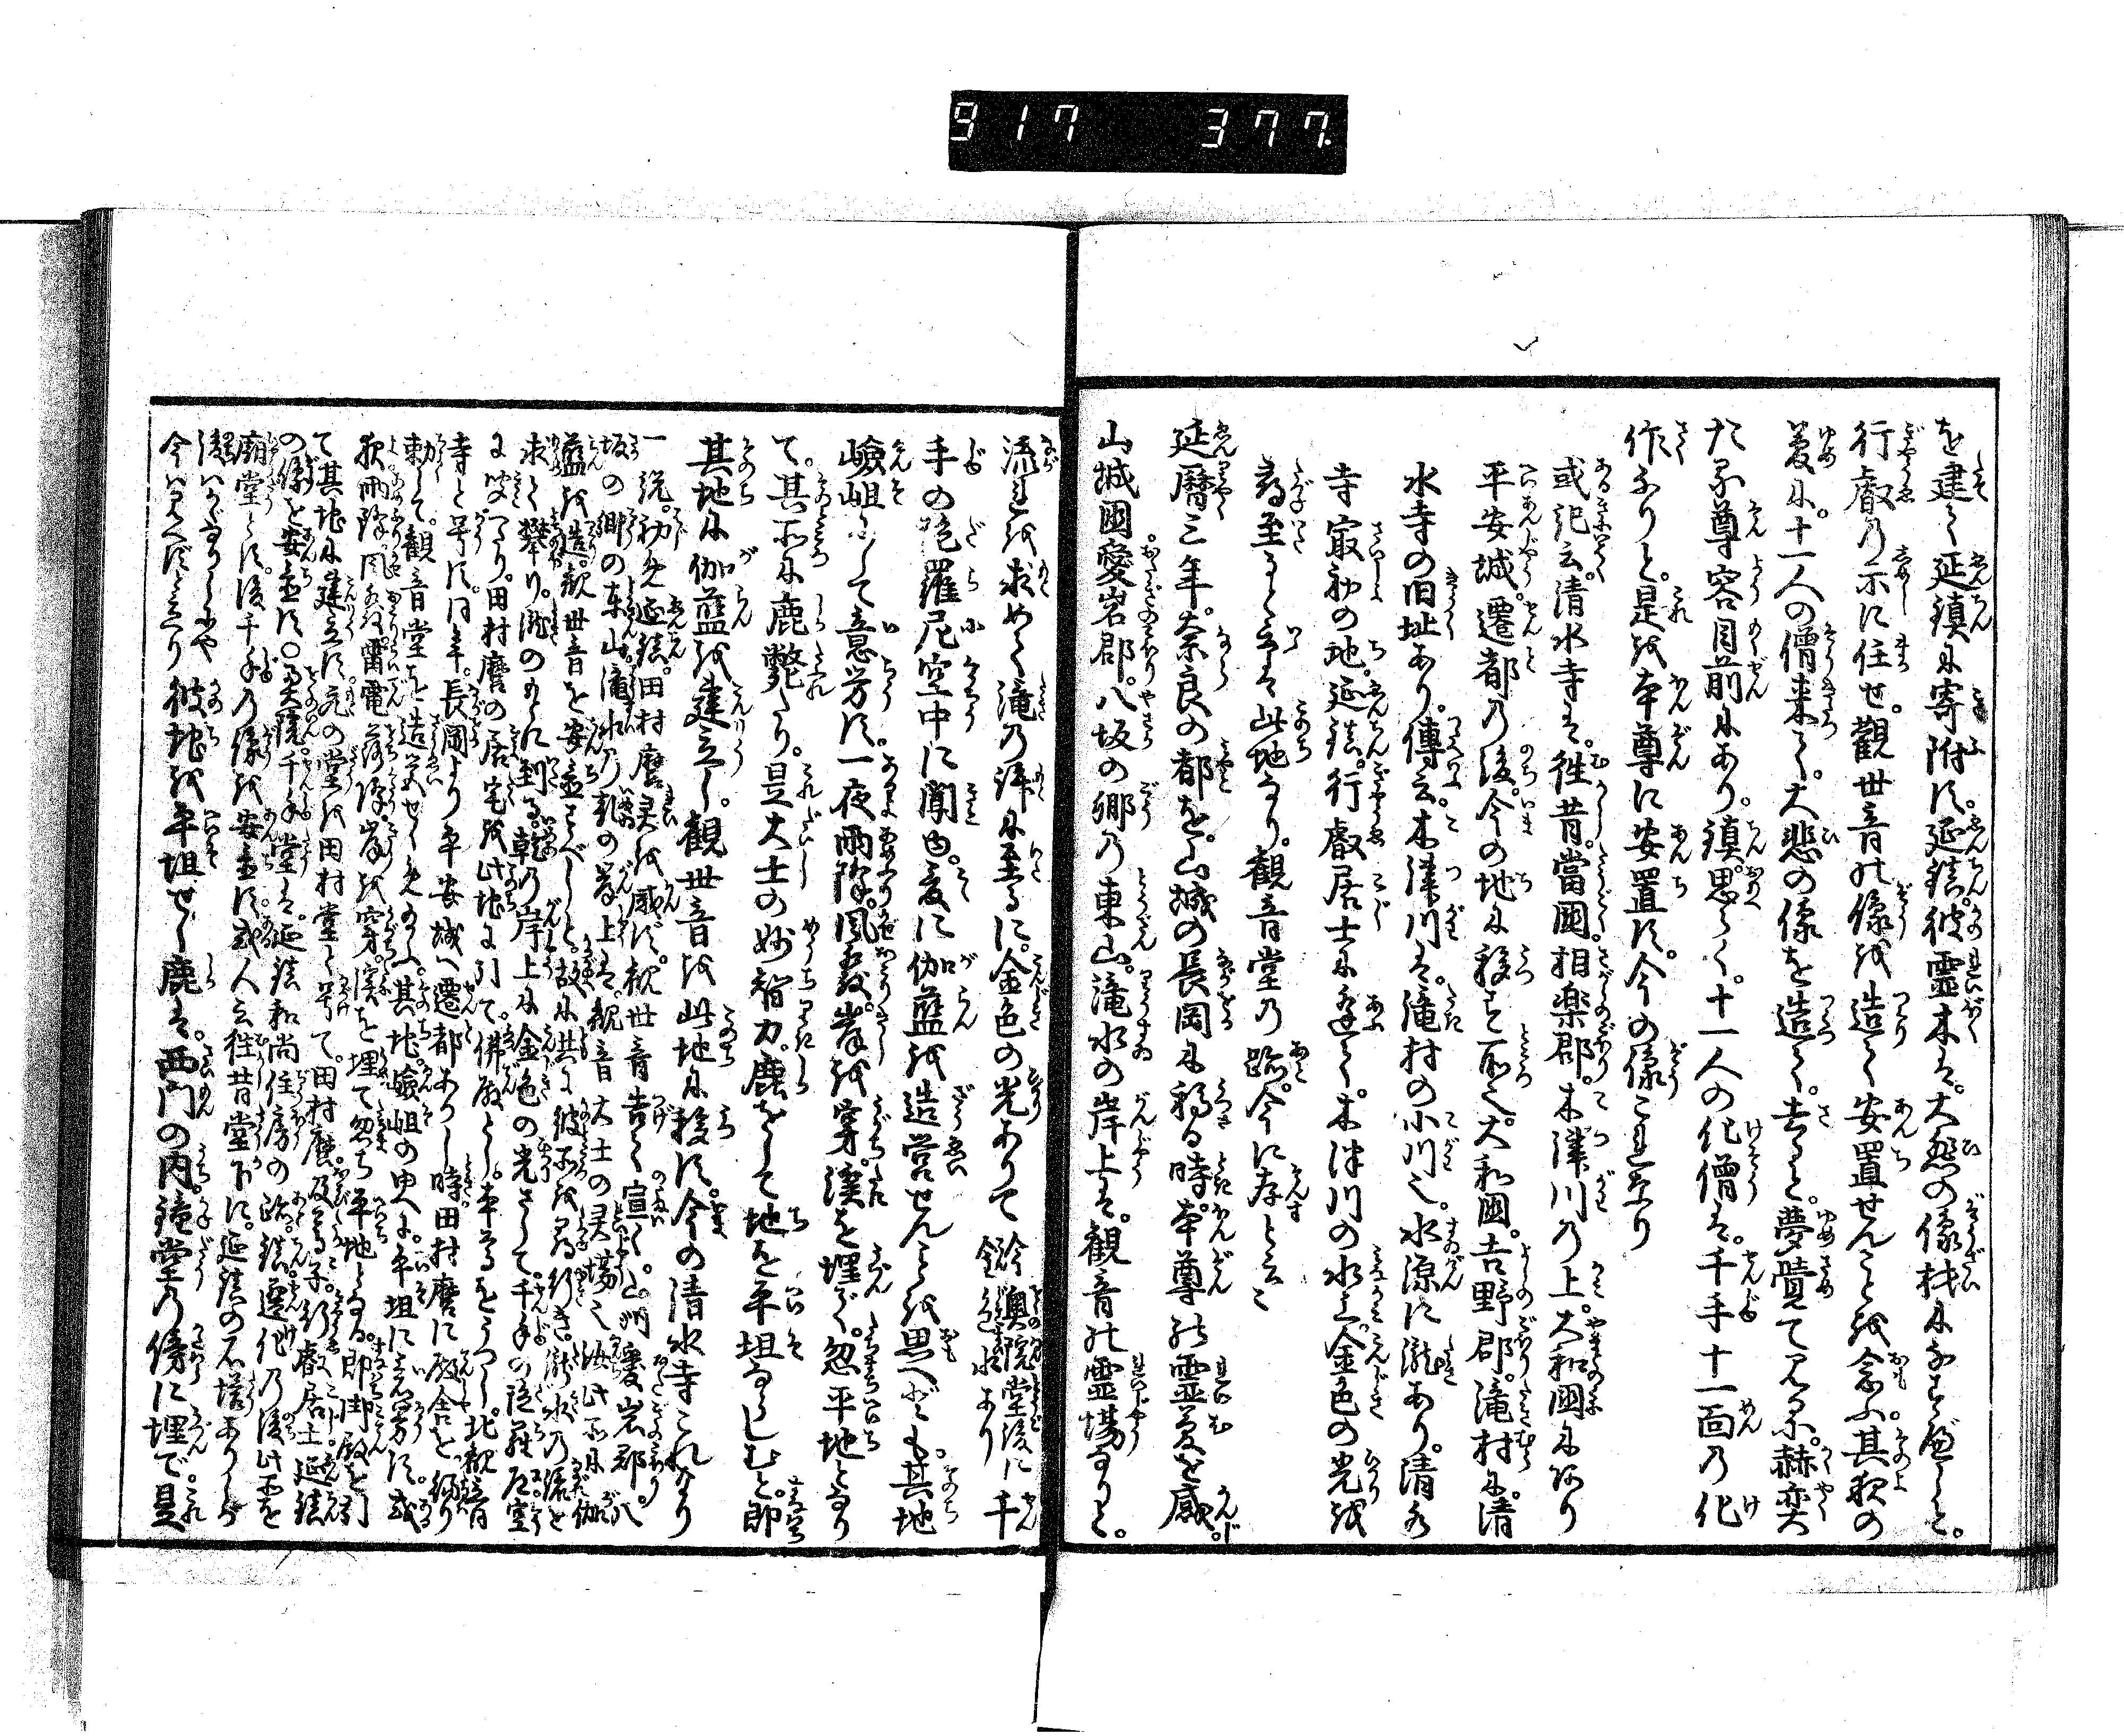 917 377.
を建て延鎮に寄附す。延鎮。彼霊木は。大悲の像材になすべしと。
行叡の示に任せ。觀世音の像を造て安置せんことを念ふ。其夜の
夢に。十一人の僧来て。大悲の像を造て。去ると。夢覚て見るに。赫奕
たる尊容目前にあり。鎮思らく。十一人の化僧は。千手十一面の化
作なりと。是を本尊に安置す。今の像これなり
或記云。清水寺は。往昔。當國。相楽郡。木津川の上。大和國にあり
平安城。遷都の後。今の地に移す所也。大和國。吉野郡。滝村に。清
水寺の旧址あり。傳云。木津川は。滝村の小川也。水源に瀧あり。清水
寺最初の地。延鎮。行叡居士に逢て。木津川の水上。金色の光を
尋至ると云は此地なり。觀音堂の跡。今に存と云云
延暦三年。奈良の都を。山城の長岡に移る時。本尊の霊夢を感。
山城國愛宕郡。八坂の郷の東山。滝水の岸上は。観音の霊場なりと。
流れを求めて滝の辞に至るに。金色の光ありて
今奥院堂後に
金色水あり
千
手の陀羅尼空中に聞ゆ。爰に伽藍を造営せんことを思へども。其地
嶮岨にして意労す。一夜雨降。風烈。岸を穿。渓を埋て。忽平地となり
て。其所に鹿斃たり。是大士の妙智力。鹿をして地を平坦ならしむと。即
其地に伽藍を建立し。観世音を此地に移す。今の清水寺これなり
一説。初め延鎮。田村麿霊を感ず。観世音告て宣く。山州愛宕郡。八
坂の郷の東山。滝水の乾の岸上は。観音大士の霊場也汝此所に伽
藍を造。観世音を安置すべしと。故に共に彼所を尋行き。瀧水の源を
求て攀り。瀧のもとに到る。乾の岸上に金色の光さして。千手の陀羅尼空
に聞へたり。田村麿の居宅を此地に引て。佛殿とし。本尊をうつし。北観音
寺と号す。同年。長岡より平安城へ遷都ありし時。田村麿に殿舎を賜り
勅して。観音堂を造営せしめたまふ。其地嶮岨の中に平坦に意労す。或
夜。雨降。風烈。雷電落降。岸を穿。渓を埋て忽ち平地となる。即御殿を引
て其地に建立す。元の堂を田村堂と号て。田村麿。及高子。行叡居士延鎮
の像を安置す。○奥院。千手堂は。延鎮和尚住房の跡。鎮。遷化の後此所を
廟堂とす。後千手の像を安置す。或人云往昔堂下に。延鎮の石塔ありしが
後はなかりしにや
今は見へずと云り
彼地を平坦せし鹿は。西門の内。鐘堂の傍に埋で。是